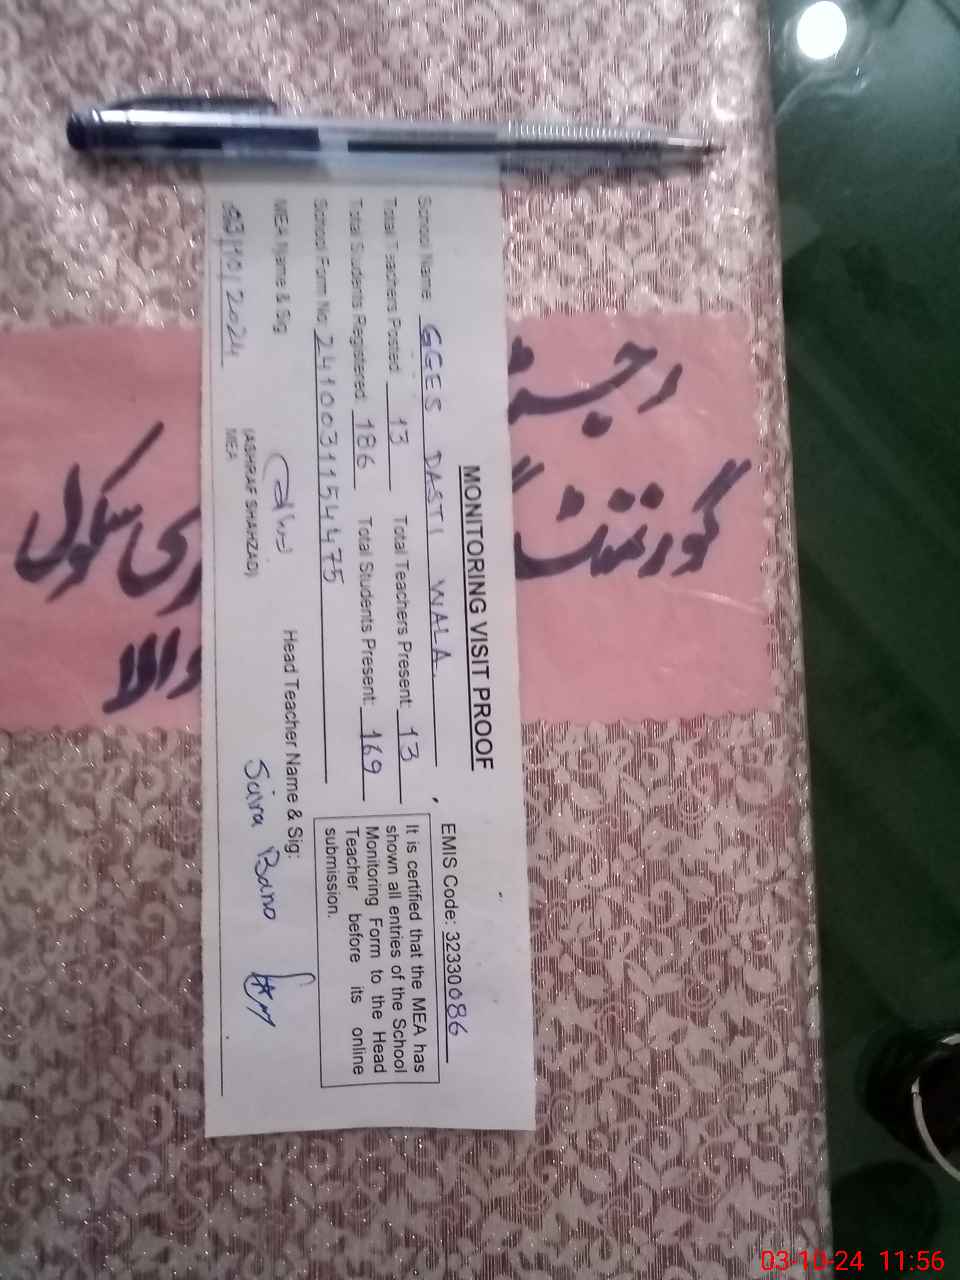 رجسٹر
گورنمنٹ
ری سکول
والا
MONITORING VISIT PROOF
School Name: GGES DASTI WALA.
EMIS Code: 32330086
Total Teachers Posted: 13 Total Teachers Present: 13
Total Students Registered: 186 Total Students Present: 169
School Form No: 2410031154475
It is certified that the MEA has
shown all entries of the School
Monitoring Form to the Head
Teacher before its online
submission.
MEA Name & Sig:
Head Teacher Name & Sig:
(ASHRAF SHAHZAD)
MEA
Saira Bano
03/10/2024
03-10-24 11:56